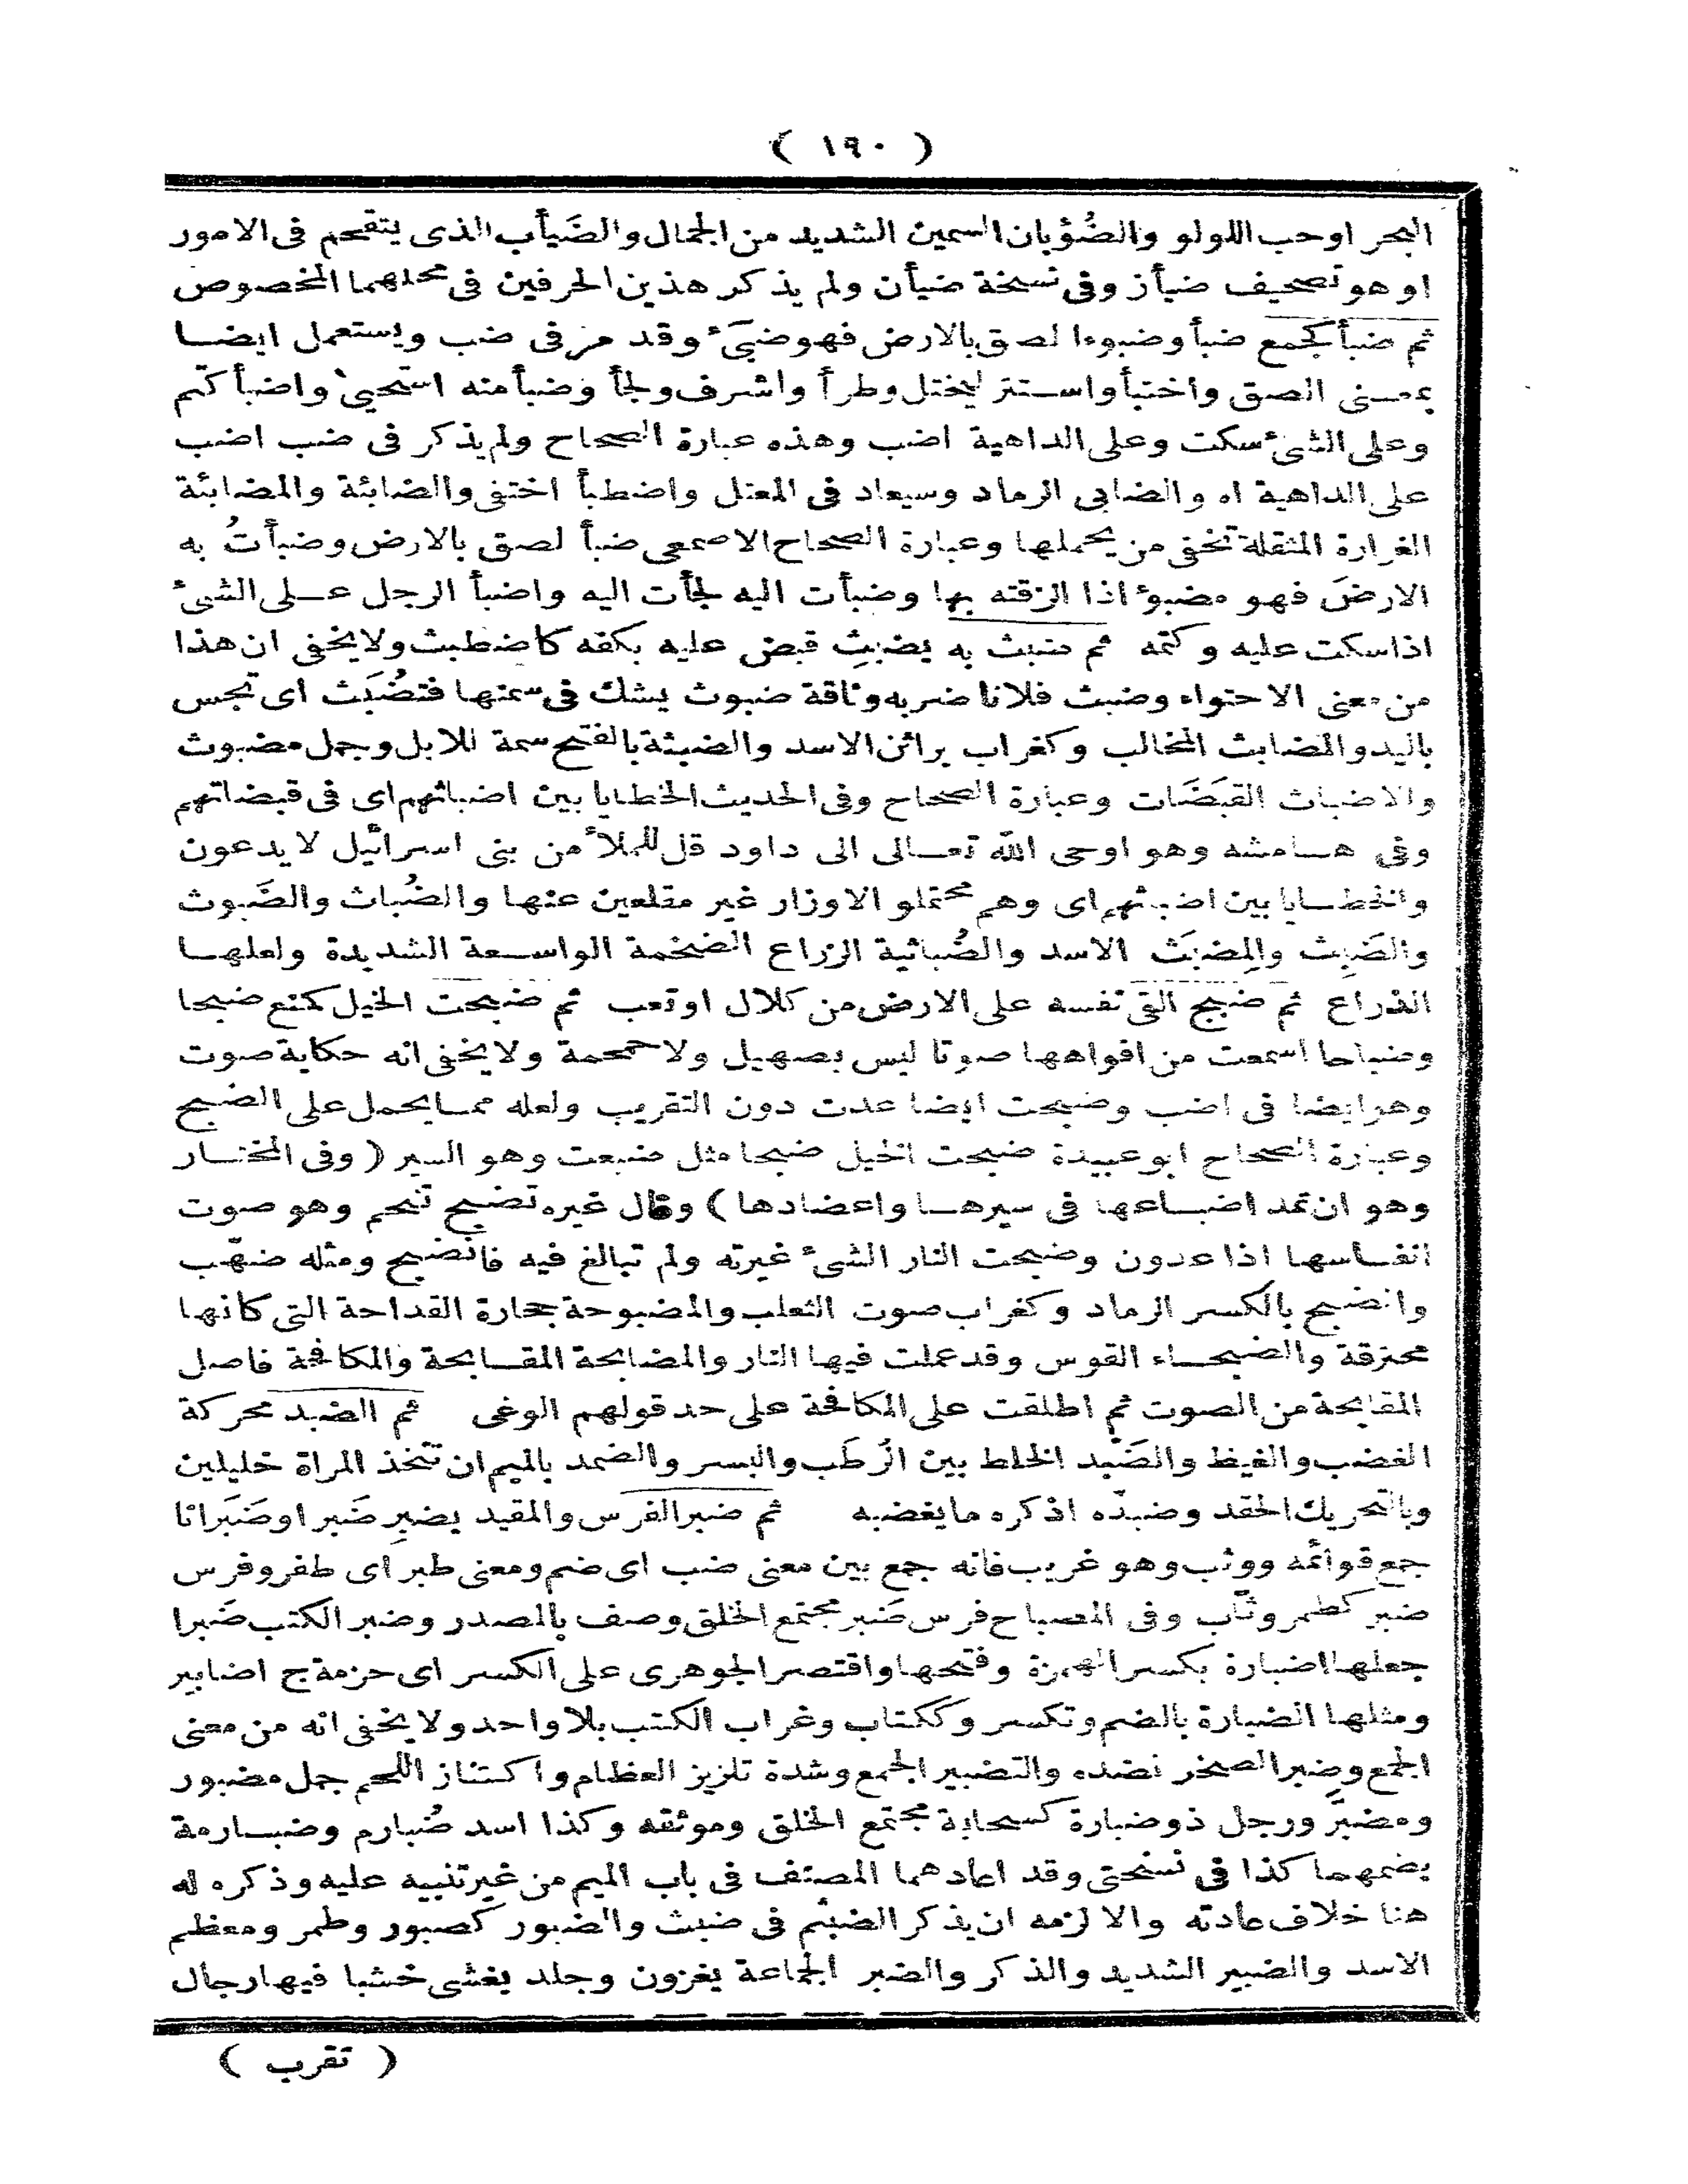 ( ١٩٠ )
البحر او حب اللولو والضُؤبان السمين الشديد من الجمال والضَيأب الذى يتقحم فى الامور
او هو تصحيف ضيأز وفى نسخة ضيأن ولم يذكر هذين الحرفين فى محلهما المخصوص
ثم ضبأ كجمع ضبأ وضبوءا لصق بالارض فهو ضبىء وقد مر فى ضب ويستعمل ايضا
بمعنى الصق واختبأ واستتر ليختل وطرأ واشرف ولجأ وضبأ منه استحيى واضبأ كتم
وعلى الشىء سكت وعلى الداهية اضب وهذه عبارة الصحاح ولم يذكر فى ضب اضب
على الداهية اه والضابى الرماد وسيعاد فى المعتل واضطبأ اختفى والضابئة والمضابئة
الغرارة المثقلة تخفى من يحملها وعبارة الصحاح الاصمعى ضبأ لصق بالارض وضبأتُ به
الارضَ فهو مضبوء اذا الزقته بها وضبأت اليه لجأت اليه واضبأ الرجل على الشىء
اذا سكت عليه وكتمه ثم ضبث به يضبِث قبض عليه بكفه كاضطبث ولا يخفى ان هذا
من معنى الاحتواء وضبث فلانا ضربه وناقة ضبوث يشك فى سمنها فتُضبَث اى تجس
باليد والمضابث المخالب وكغراب براثن الاسد والضبثة بالفتح سمة للابل وجمل مضبوث
والاضباث القبَضَات وعبارة الصحاح وفى الحديث الخطايا بين اضباثهم اى فى قبضاتهم
وفى هامشه وهو اوحى الله تعالى الى داود قل للملأ من بنى اسرائيل لا يدعون
والخطايا بين اضباثهم اى وهم محتملو الاوزار غير مقلعين عنها والضُباث والضَبوث
والضَبِث والمِضبَث الاسد والضُباثية الزراع الضخمة الواسعة الشديدة ولعلها
الذراع ثم ضبج القى نفسه على الارض من كلال او تعب ثم ضبحت الخيل كمنع ضبحا
وضباحا اسمعت من افواهها صوتا ليس بصهيل ولا حمحمة ولا يخفى انه حكاية صوت
وهو ايضا فى اضب وضبحت ايضا عدت دون التقريب ولعله مما يحمل على الضبح
وعبارة الصحاح ابو عبيدة ضبحت الخيل ضبحا مثل ضبعت وهو السير ( وفى المختار
وهو ان تمد اضباعها فى سيرها واعضادها ) وقال غيره تضبح تنحم وهو صوت
انفاسها اذا عدون وضبحت النار الشىء غيرته ولم تبالغ فيه فانضبح ومثله ضهّب
والضبح بالكسر الرماد وكغراب صوت الثعلب والمضبوحة حجارة القداحة التى كانها
محترقة والضبحاء القوس وقد عملت فيها النار والمضابحة المقابحة والمكافحة فاصل
المقابحة من الصوت ثم اطلقت على المكافحة على حد قولهم الوغى ثم الضبد محركة
الغضب والغيظ والضَبْد الخلط بين الرُطَب والبسر والضمد بالميم ان تتخذ المراة خليلين
وبالتحريك الحقد وضبدّه اذكره ما يغضبه ثم ضبر الفرس والمقيد يضبِر ضَبر او ضَبَرانا
جمع قوائمه ووثب وهو غريب فانه جمع بين معنى ضب اى ضم ومعنى طبر اى طفر وفرس
ضبر كطمر وثّاب وفى المصباح فرس ضَبر مجتمع الخلق وصف بالمصدر وضبر الكتب ضَبرا
جعلها اضبارة بكسر الهمزة وفتحها واقتصر الجوهرى على الكسر اى حزمة ج اضابير
ومثلها الضبارة بالضم وتكسر وككتاب وغراب الكتب بلا واحد ولا يخفى انه من معنى
الجمع وضبر الصخر نضده والتضبير الجمع وشدة تلزيز العظام واكتناز اللحم جمل مضبور
ومضبّر ورجل ذو ضبارة كسحابة مجتمع الخلق وموثقه وكذا اسد ضُبارم وضبارمة
بضمهما كذا فى نسختى وقد اعادهما المصنف فى باب الميم من غير تنبيه عليه وذكره له
هنا خلاف عادته والا لزمه ان يذكر الضبثم فى ضبث والضبور كصبور وطمر ومعظم
الاسد والضبير الشديد والذكر والضبر الجماعة يغزون وجلد يغشى خشبا فيها رجال
( تقرب )